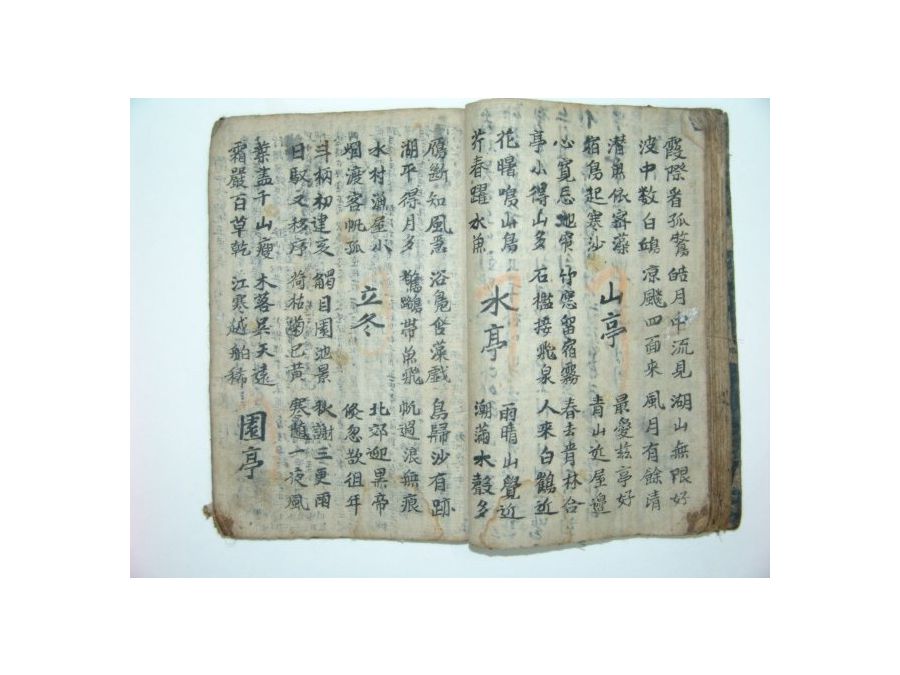 霞際看孤鶩 皓月中流見 湖山無限好
波中数白鴎 凉飈四面来 風月有餘清
潜魚依密藻 山亭 最愛茲亭好
宿鳥起寒沙 青山近屋邊
心寛忘地窄 竹窓留宿霧 春去青林合
亭小得山多 石檻接飛泉 人来白鶴近
花曙鳴山鳥 水亭 雨晴山覺近
芥春躍水魚 潮滿水聲多
鴈断知風急 浴鳧眠藻戯 鳥歸沙有跡
湖平得月多 驚鷗帶魚飛 帆過浪無痕
水村漁屋小 立冬 北郊迎黒帝
烟渡客帆孤 倐忽歆徂年
斗柄初建亥 觸目園池景 秋謝三更雨
日馭又移序 荷枯菊已黄 寒隨一夜風
葉盡千山瘦 木落吴天遠 園亭
霜嚴百草乾 江寒越舶稀